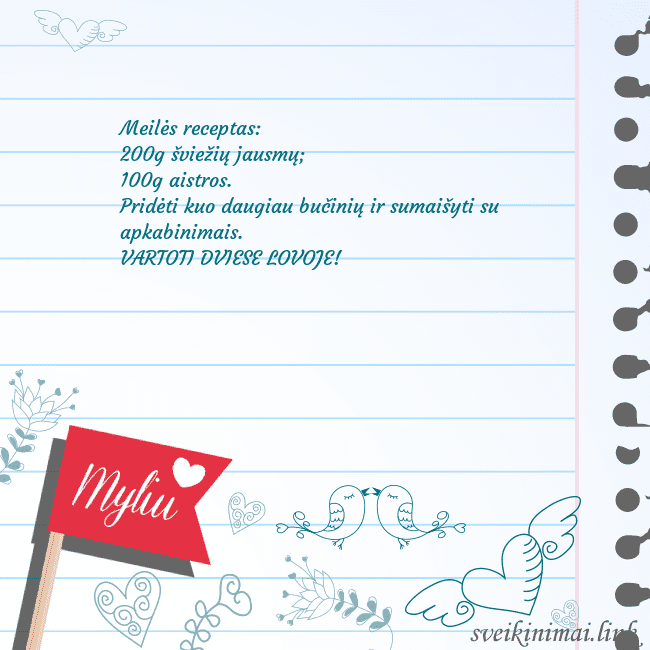 Meilės receptas:
200g šviežių jausmų;
100g aistros.
Pridėti kuo daugiau bučinių ir sumaišyti su
apkabinimais.
VARTOTI DVIESE LOVOJE!
Myliu
sveikinimai.link